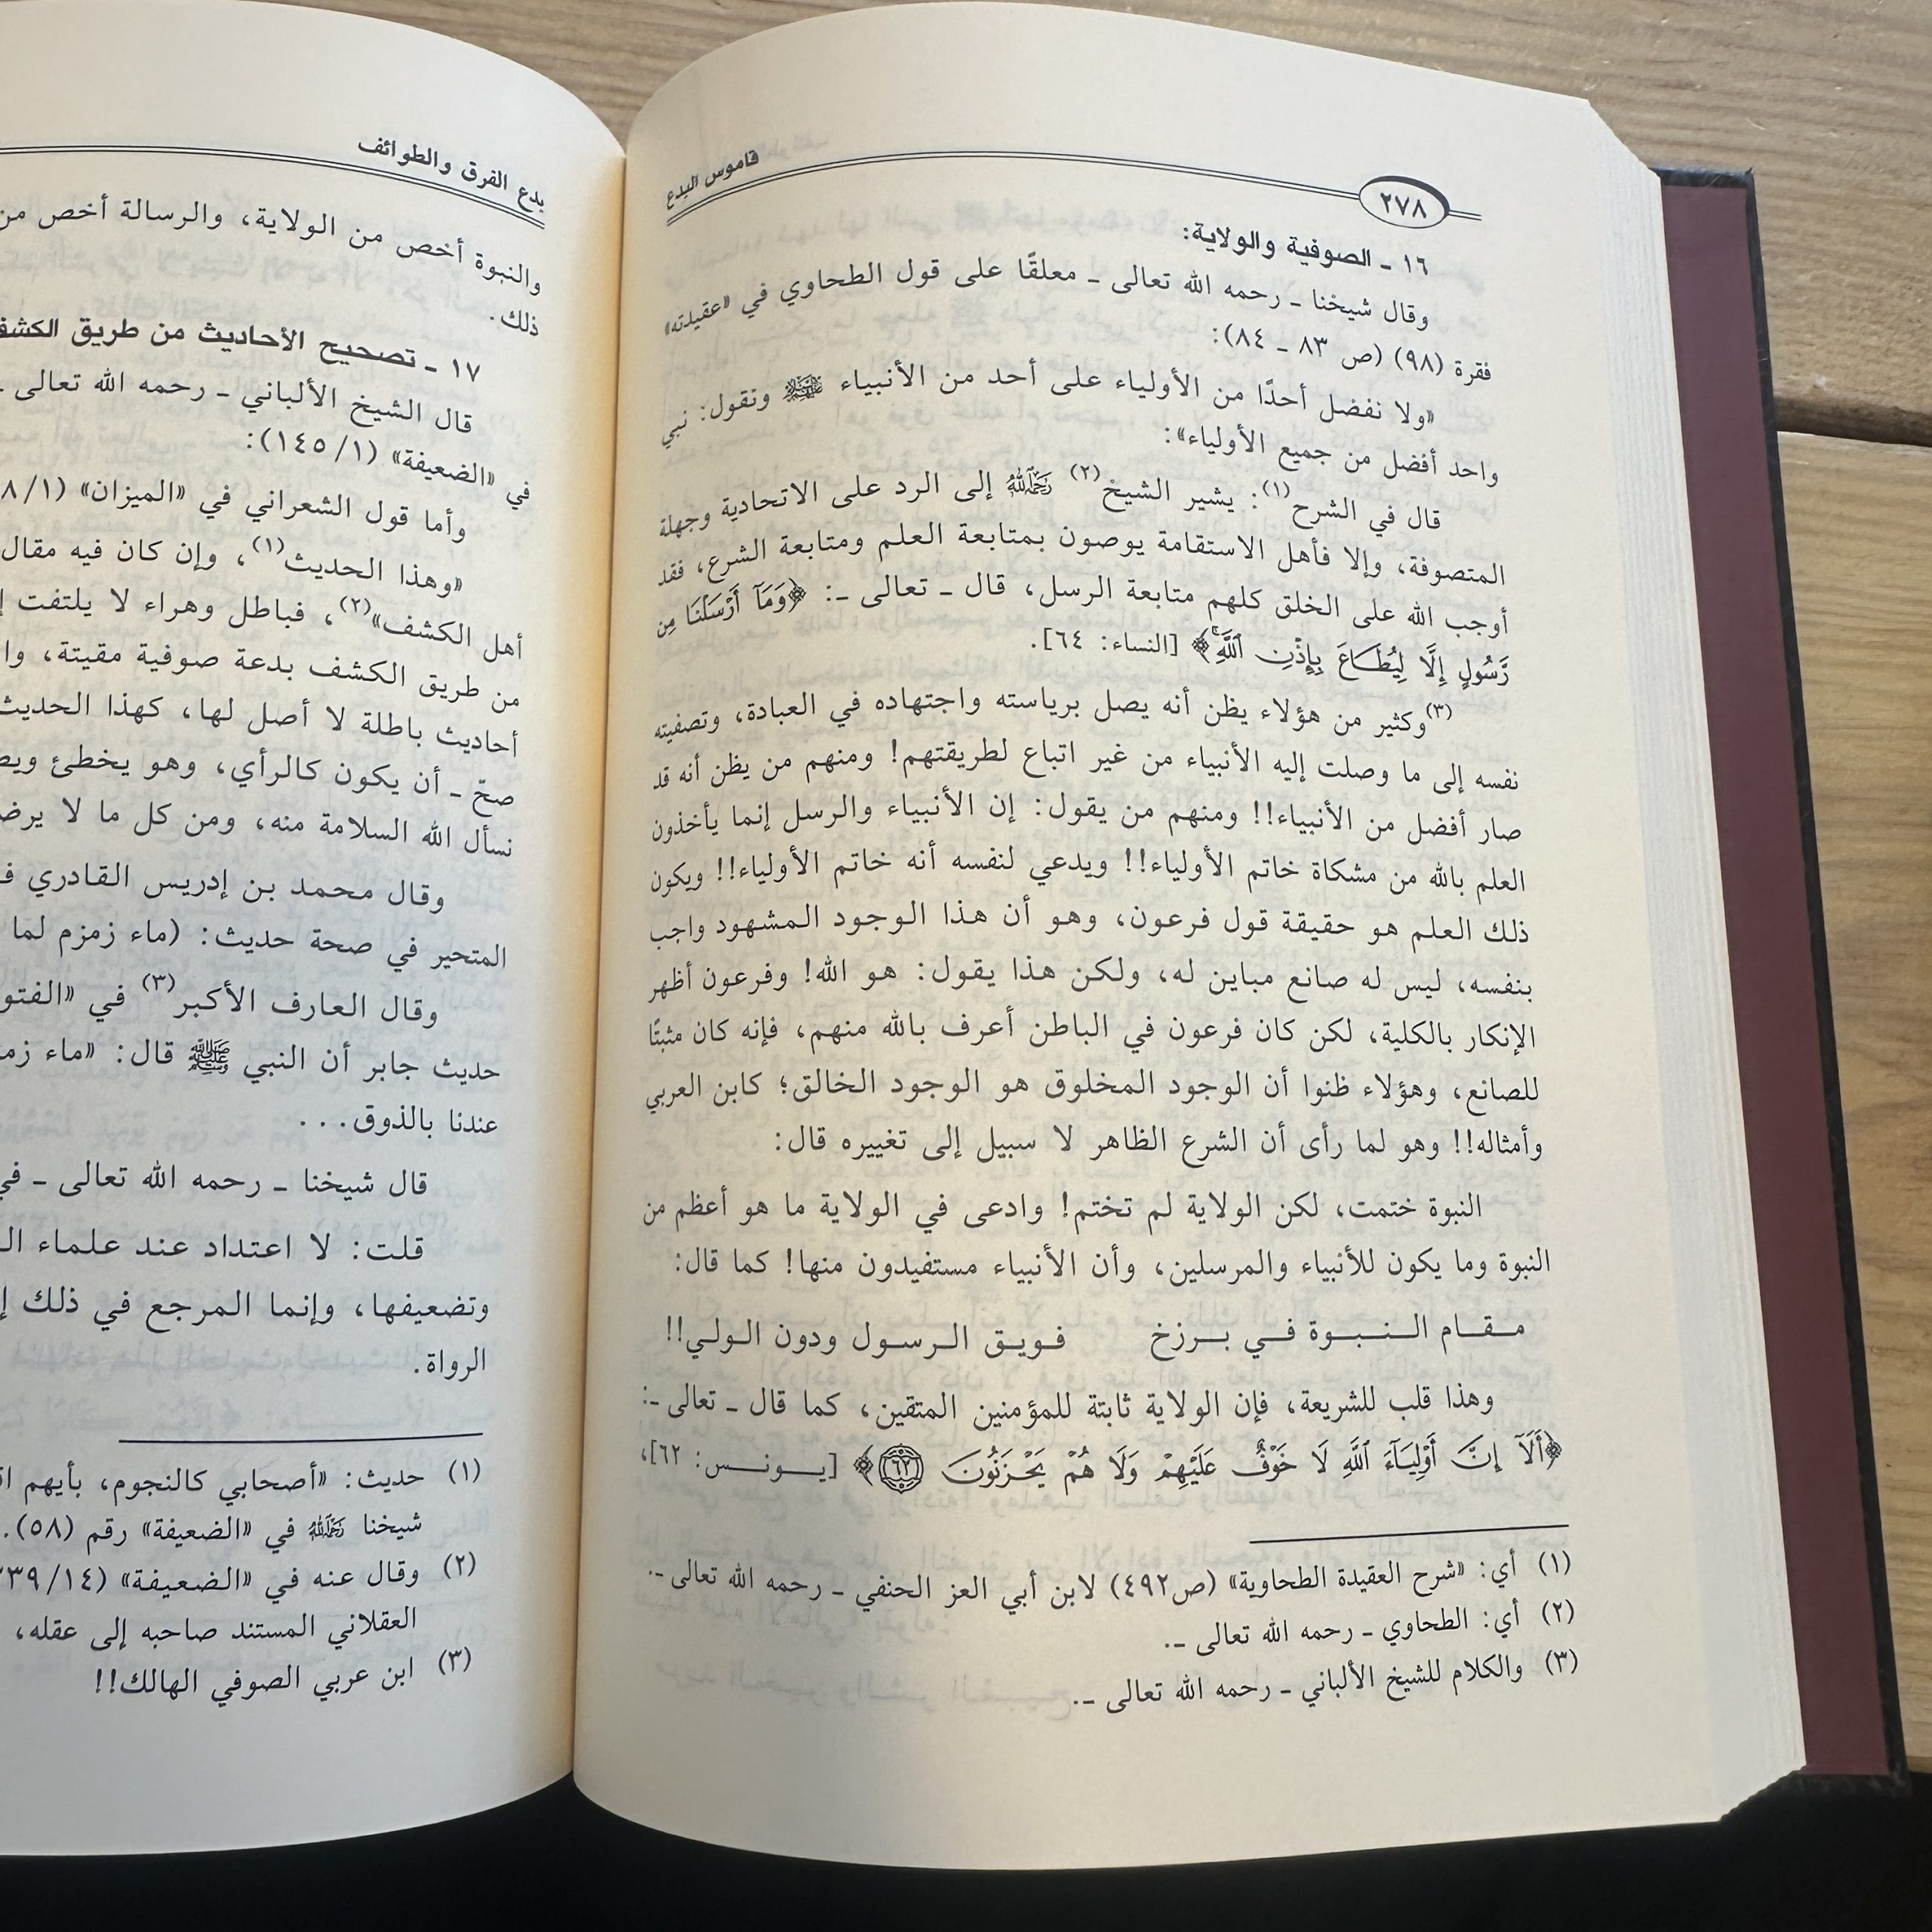 ٢٧٨
قاموس البدع
١٦ ـ الصوفية والولاية:
وقال شيخنا ـ رحمه الله تعالى ـ معلقًا على قول الطحاوي في «عقيدته»
فقرة (٩٨) (ص ٨٣ ـ ٨٤):
«ولا نفضل أحدًا من الأولياء على أحد من الأنبياء ونقول: نبي
واحد أفضل من جميع الأولياء»:
قال في الشرح(١): يشير الشيخ(٢) رحمه الله إلى الرد على الاتحادية وجهلة
المتصوفة، وإلا فأهل الاستقامة يوصون بمتابعة العلم ومتابعة الشرع، فقد
أوجب الله على الخلق كلهم متابعة الرسل، قال ـ تعالى ـ: ﴿وَمَآ أَرْسَلْنَا مِن
رَّسُولٍ إِلَّا لِيُطَاعَ بِإِذْنِ ٱللَّهِۚ﴾ [النساء: ٦٤].
(٣)وكثير من هؤلاء يظن أنه يصل برياسته واجتهاده في العبادة، وتصفيته
نفسه إلى ما وصلت إليه الأنبياء من غير اتباع لطريقتهم! ومنهم من يظن أنه قد
صار أفضل من الأنبياء!! ومنهم من يقول: إن الأنبياء والرسل إنما يأخذون
العلم بالله من مشكاة خاتم الأولياء!! ويدعي لنفسه أنه خاتم الأولياء!! ويكون
ذلك العلم هو حقيقة قول فرعون، وهو أن هذا الوجود المشهود واجب
بنفسه، ليس له صانع مباين له، ولكن هذا يقول: هو الله! وفرعون أظهر
الإنكار بالكلية، لكن كان فرعون في الباطن أعرف بالله منهم، فإنه كان مثبتًا
للصانع، وهؤلاء ظنوا أن الوجود المخلوق هو الوجود الخالق؛ كابن العربي
وأمثاله!! وهو لما رأى أن الشرع الظاهر لا سبيل إلى تغييره قال:
النبوة ختمت، لكن الولاية لم تختم! وادعى في الولاية ما هو أعظم من
النبوة وما يكون للأنبياء والمرسلين، وأن الأنبياء مستفيدون منها! كما قال:
مقام النبوة في برزخ فويق الرسول ودون الولي!!
وهذا قلب للشريعة، فإن الولاية ثابتة للمؤمنين المتقين، كما قال ـ تعالى ـ:
﴿أَلَآ إِنَّ أَوْلِيَآءَ ٱللَّهِ لَا خَوْفٌ عَلَيْهِمْ وَلَا هُمْ يَحْزَنُونَ ٦٢﴾ [يونس: ٦٢]،
(١) أي: «شرح العقيدة الطحاوية» (ص٤٩٢) لابن أبي العز الحنفي ـ رحمه الله تعالى ـ.
(٢) أي: الطحاوي ـ رحمه الله تعالى ـ.
(٣) والكلام للشيخ الألباني ـ رحمه الله تعالى ـ.
بدع الفرق والطوائف
والنبوة أخص من الولاية، والرسالة أخص من
ذلك.
١٧ ـ تصحيح الأحاديث من طريق الكشف
قال الشيخ الألباني ـ رحمه الله تعالى ـ
في «الضعيفة» (١/١٤٥):
وأما قول الشعراني في «الميزان» (٨/١
«وهذا الحديث(١)، وإن كان فيه مقال
أهل الكشف»(٢)، فباطل وهراء لا يلتفت
من طريق الكشف بدعة صوفية مقيتة،
أحاديث باطلة لا أصل لها، كهذا الحديث
صحّ ـ أن يكون كالرأي، وهو يخطئ
نسأل الله السلامة منه، ومن كل ما لا
وقال محمد بن إدريس القادري
المتحير في صحة حديث: (ماء زمزم لما
وقال العارف الأكبر(٣) في
حديث جابر أن النبي ﷺ قال: «ماء
عندنا بالذوق...
قال شيخنا ـ رحمه الله تعالى ـ
قلت: لا اعتداد عند علماء
وتضعيفها، وإنما المرجع في ذلك
الرواة.
(١) حديث: «أصحابي كالنجوم، بأيهم
شيخنا رحمه الله في «الضعيفة» رقم (٥٨).
(٢) وقال عنه في «الضعيفة»
العقلاني المستند صاحبه إلى عقله،
(٣) ابن عربي الصوفي الهالك!!